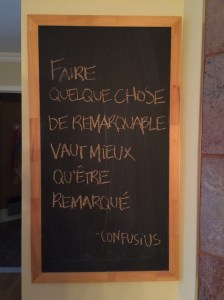 FAIRE
QUELQUE CHOSE
DE REMARQUABLE
VAUT MIEUX
QU'ÊTRE
REMARQUÉ
-CONFUSIUS